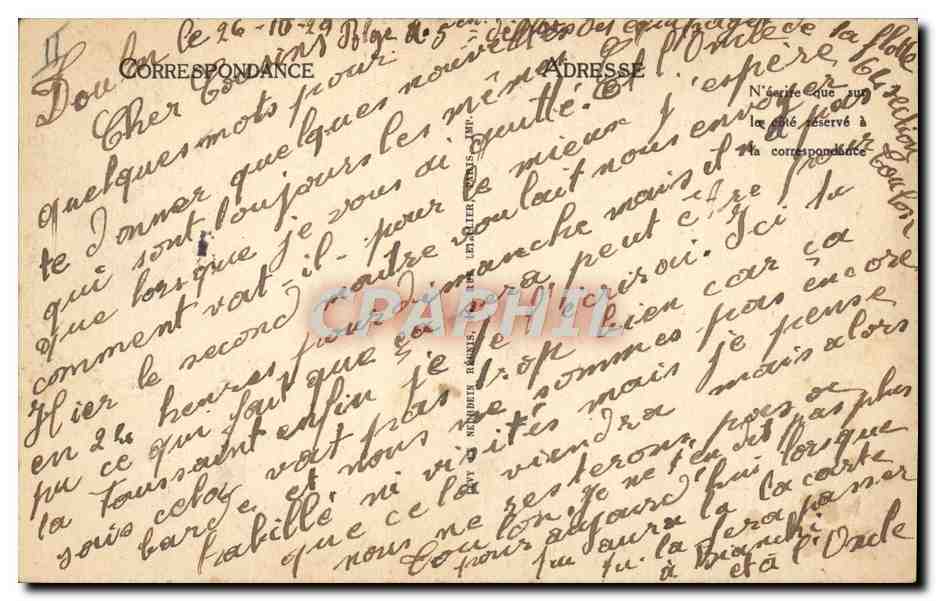 Toulon le 26-10-29
de la flotte
6e section
Toulon
CORRESPONDANCE
ADRESSE
N'écrire que sur
le côté réservé à
la correspondance
LEVY ET NEURDEIN RÉUNIS, LETELLIER, PARIS, IMP.
Cher Cousin
quelques mots pour
te donner quelques nouvelles
qui sont toujours les mêmes
que lorsque je vous ai quitté. Et l'Oncle
comment vat-il pour le mieux j'espère
Hier le second maître voulait nous envoyer
en 24 heures pour dimanche mais il n'a pas
pu ce qui fait que ça sera peut être pour
la Toussaint enfin je te l'écrirai. Ici tu
sais cela vat pas trop bien car ça
barde et nous ne sommes pas encore
habillé ni visités mais je pense
que cela viendra mais alors
nous ne resterons pas a
Toulon. Je ne t'en dit pas plus
pour aujourd'hui lorsque
tu aura lu la carte
tu la fera passer
à
et à l'Oncle
CPARAMA